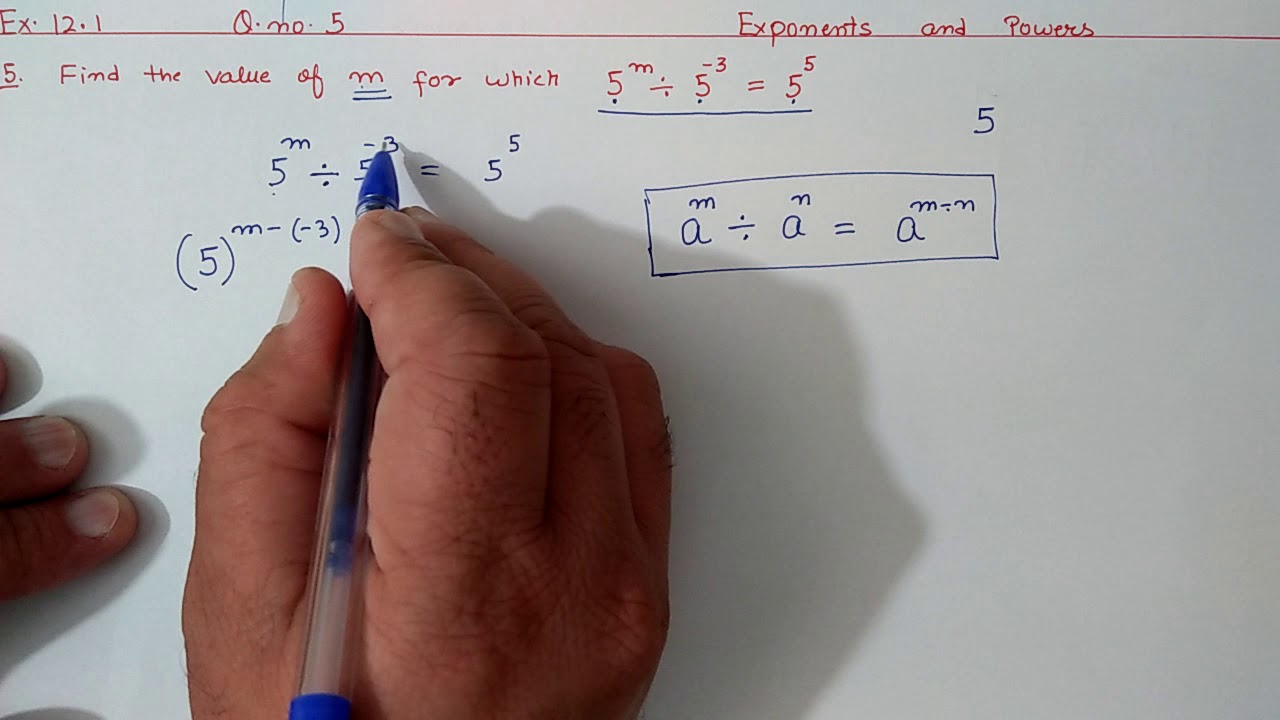 Ex. 12.1 Q.no. 5 Exponents and Powers
5. Find the value of m for which 5^m ÷ 5^-3 = 5^5
5
5^m ÷ 5^-3 = 5^5
a^m ÷ a^n = a^m-n
(5)^m-(-3)